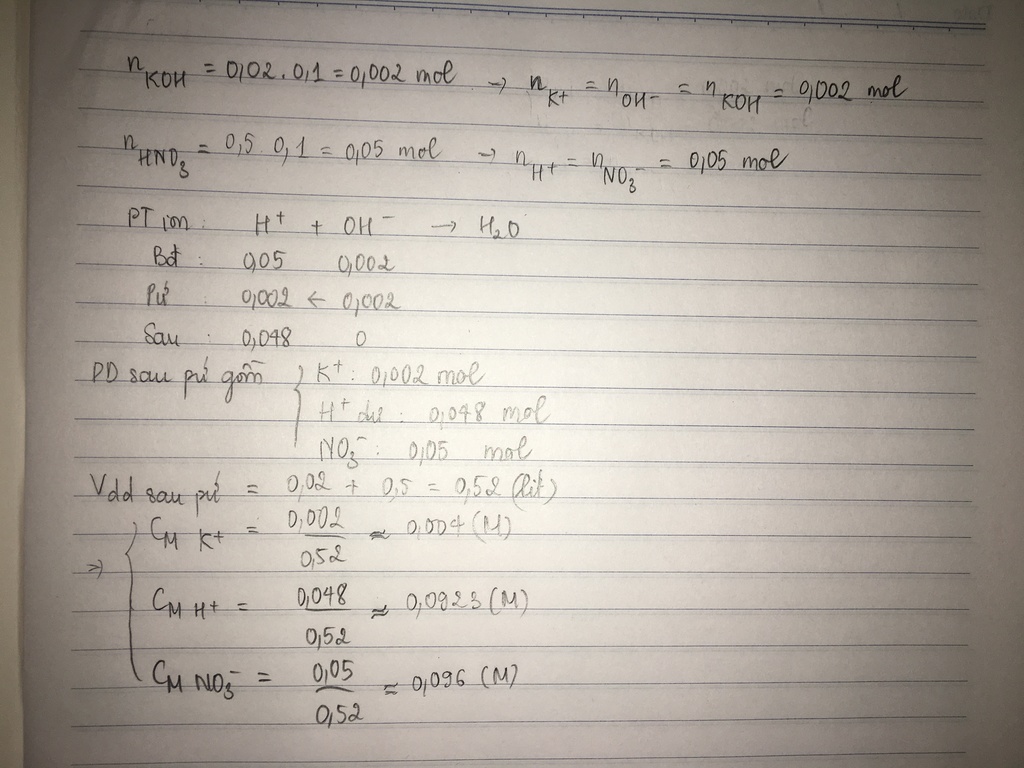 n KOH = 0,02 . 0,1 = 0,002 mol → n K+ = n OH- = n KOH = 0,002 mol
n HNO3 = 0,5 . 0,1 = 0,05 mol → n H+ = n NO3- = 0,05 mol
PT ion : H+ + OH- → H2O
Bđ : 0,05 0,002
Pứ : 0,002 ← 0,002
Sau : 0,048 0
DD sau pứ gồm { K+ : 0,002 mol
H+ dư : 0,048 mol
NO3- : 0,05 mol
Vdd sau pứ = 0,02 + 0,5 = 0,52 (lít)
⇒ { CM K+ = 0,002 / 0,52 ≈ 0,004 (M)
CM H+ = 0,048 / 0,52 ≈ 0,0923 (M)
CM NO3- = 0,05 / 0,52 ≈ 0,096 (M)